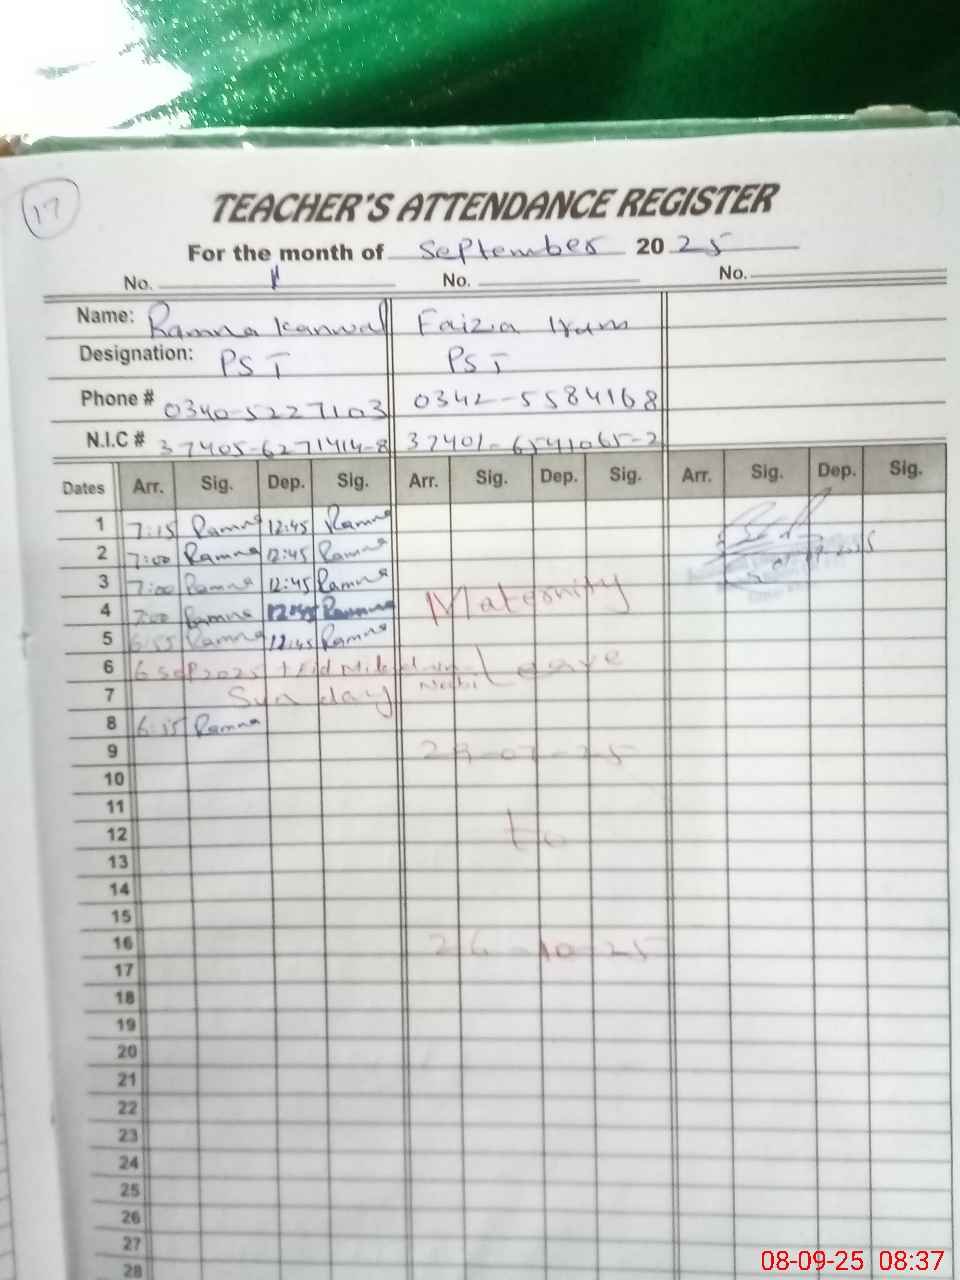 17
TEACHER'S ATTENDANCE REGISTER
For the month of September 2025
No. No. No.
Name: Ramna Kanwal Faiza Irum
Designation: PST PST
Phone # 0340-5227103 0342-5584168
N.I.C # 37405-6271414-8 37401-6541065-2
Dates Arr. Sig. Dep. Sig. Arr. Sig. Dep. Sig. Arr. Sig. Dep. Sig.
1 7:15 Ramna 12:45 Ramna
2 7:00 Ramna 12:45 Ramna
3 7:00 Ramna 12:45 Ramna
4 7:00 Ramna 12:45 Ramna Maternity
5 6:55 Ramna 12:45 Ramna
6 6 Sep 2025 Eid Milad un Nabi Leave
7 Sunday
8 6:55 Ramna
9 28-07-25
10
11
12 to
13
14
15
16 26-10-25
17
18
19
20
21
22
23
24
25
26
27
28
08-09-25 08:37